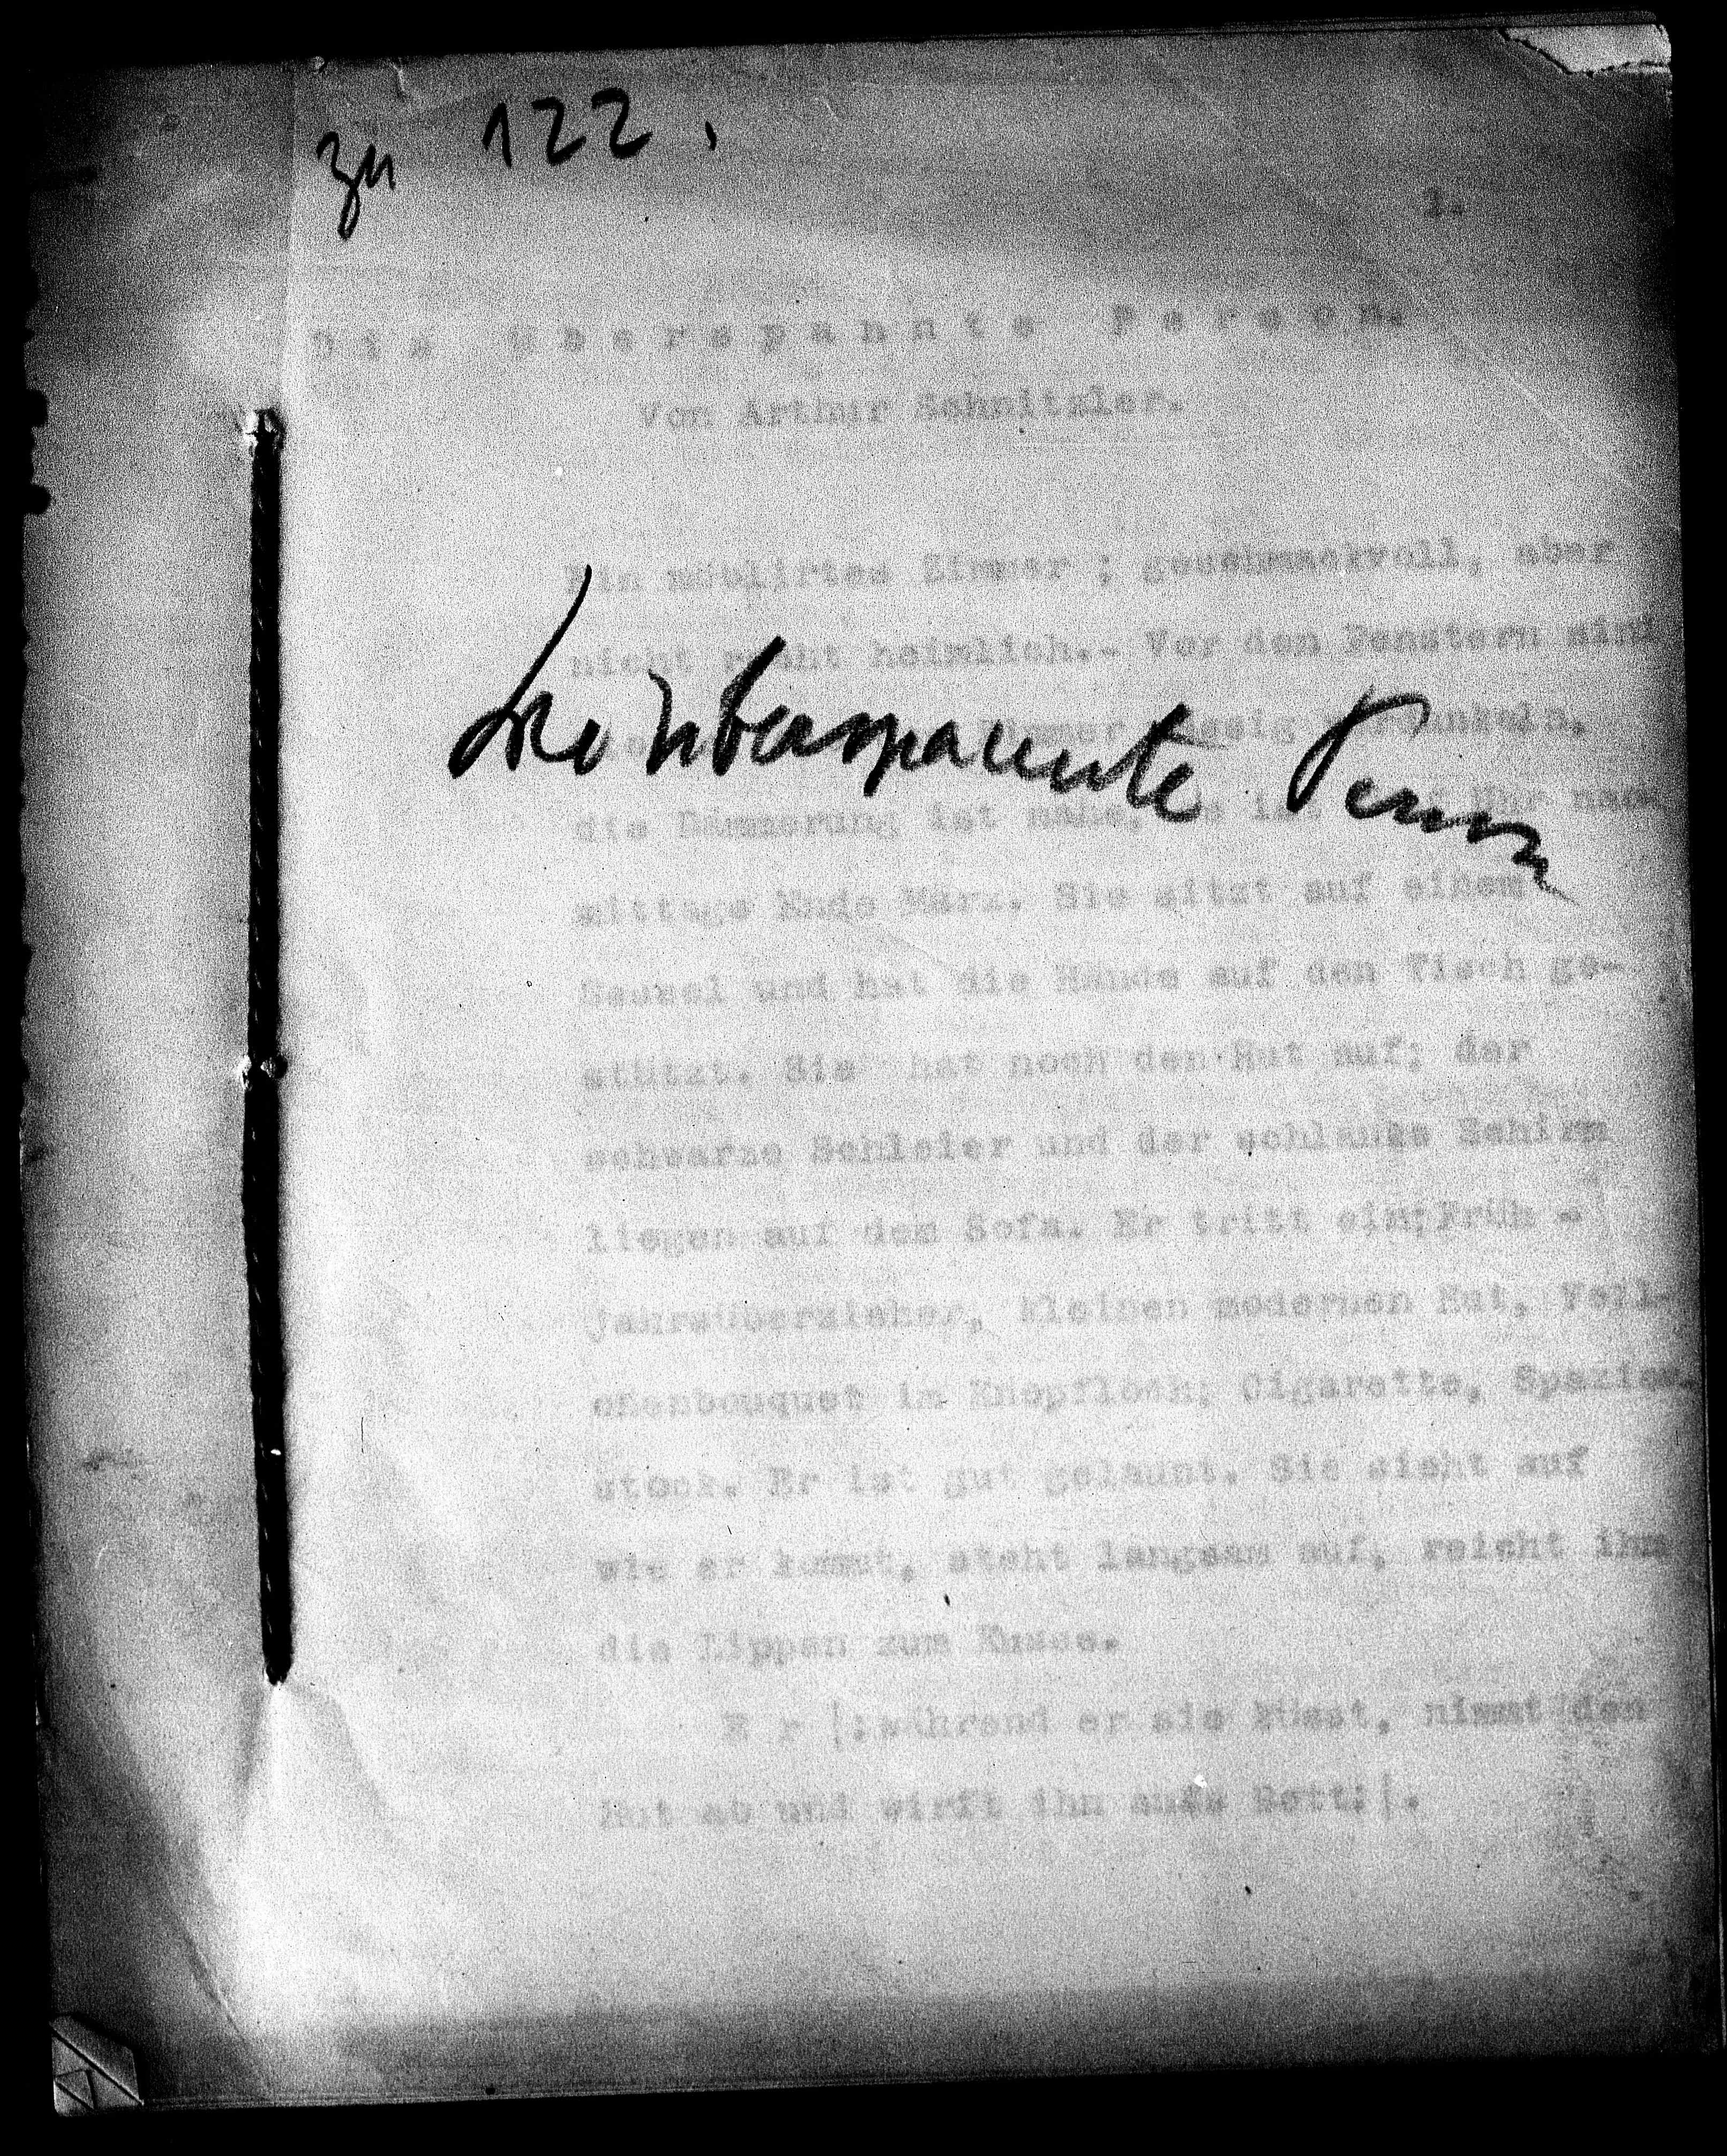 zu 122.
1.
Die überspannte Person.
Von Arthur Schnitzler.
Ein möblirtes Zimmer ; geschmackvoll, aber
nicht recht heimlich.- Vor den Fenstern sind
Die überspannte Person
Zimmer dunkeln.
die Dämmerung ist nahe, es ist Uhr nach-
mittags Ende März. Sie sitzt auf einem
Sessel und hat die Hände auf den Tisch ge-
stützt. Sie hat noch den Hut auf; der
schwarze Schleier und der schlanke Schirm
liegen auf dem Sofa. Er tritt ein; Früh -
jahrsüberzieher, kleinen modernen Hut, Veil-
chenbouquet im Knopfloch; Cigarette, Spazier-
stock. Er ist gut gelaunt. Sie sieht auf
wie er kommt, steht langsam auf, reicht ihm
die Lippen zum Kusse.
E r |:während er sie küsst, nimmt den
Hut ab und wirft ihn aufs Bett:|.